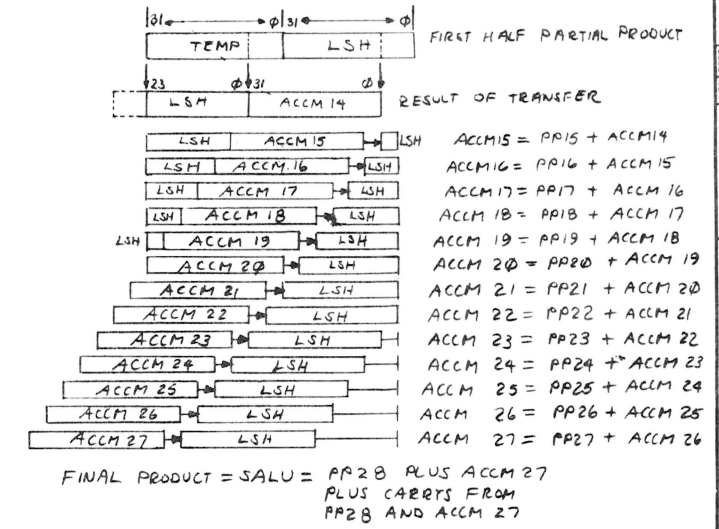 31 Ø 31 Ø
TEMP LSH FIRST HALF PARTIAL PRODUCT
23 Ø 31 Ø
LSH ACCM 14 RESULT OF TRANSFER
LSH ACCM 15 LSH ACCM15 = PP15 + ACCM14
LSH ACCM. 16 LSH ACCM16 = PP16 + ACCM 15
LSH ACCM 17 LSH ACCM17 = PP17 + ACCM 16
LSH ACCM 18 LSH ACCM 18 = PP18 + ACCM 17
LSH ACCM 19 LSH ACCM 19 = PP19 + ACCM 18
ACCM 2Ø LSH ACCM 2Ø = PP2Ø + ACCM 19
ACCM 21 LSH ACCM 21 = PP21 + ACCM 2Ø
ACCM 22 LSH ACCM 22 = PP22 + ACCM 21
ACCM 23 LSH ACCM 23 = PP23 + ACCM 22
ACCM 24 LSH ACCM 24 = PP24 + ACCM 23
ACCM 25 LSH ACCM 25 = PP25 + ACCM 24
ACCM 26 LSH ACCM 26 = PP26 + ACCM 25
ACCM 27 LSH ACCM 27 = PP27 + ACCM 26
FINAL PRODUCT = SALU = PP28 PLUS ACCM 27
PLUS CARRYS FROM
PP28 AND ACCM 27